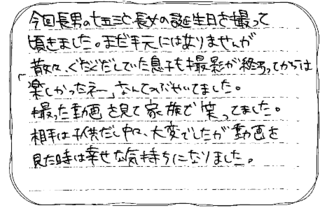 今回長男の七五三と長女の誕生日を撮って
頂きました。まだ手元にはありませんが
散々、ぐだぐだしていた息子も撮影が終ってからは
「楽しかったネー」なんてつぶやいてました。
撮った動画を見て家族で笑ってました。
相手は子供だし中々、大変でしたが動画を
見た時は幸せな気持ちになりました。